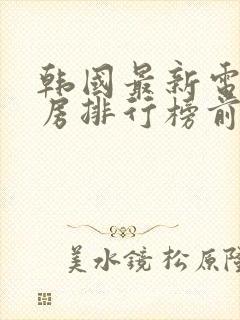 韩国最新电
居排行榜前
美水镜松原隆